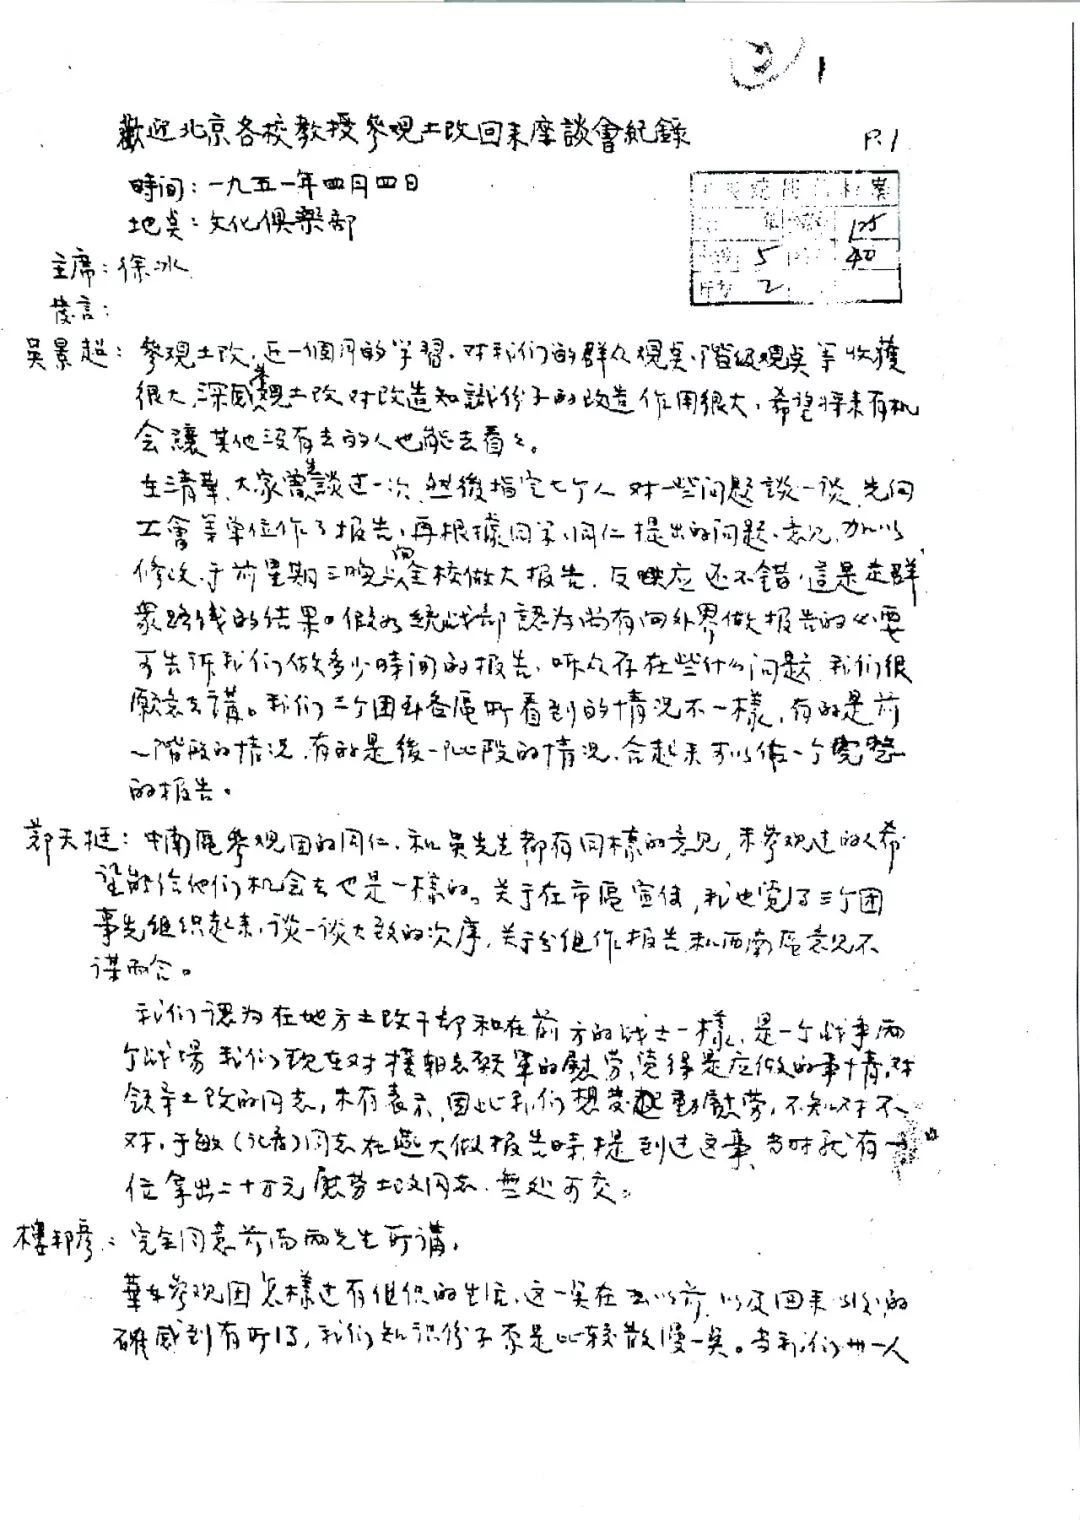 歡迎北京各校教授參观土改回来座談會紀錄
P.1
時间：一九五一年四月四日
地奌：文化俱樂部
125
5
40
2
主席：徐冰
发言：
吴景超：參观土改，近一個月的学習，对我们的群众观奌、階级观奌等收獲
很大，深感參观土改对改造知識份子的改造作用很大，希望将来有机
会讓其他没有去的人也能去看々。
在清華，大家曾先談过一次，然後指定七个人对一些问题談一談，先向
工會等单位作了报告，再根據同学、同仁提出的问题、意见，加以
修改，于前星期三晚向全校做大报告，反映应还不错，這是走群
衆路线的结果。假如統战部認为尚有向外界做报告的必要
可告訴我们做多少時间的报告，听众存在些什么问题，我们很
願意去講。我们三个团到各區所看到的情况不一樣，有的是前
一階段的情况，有的是後一阶段的情况，合起来可以作一个完整
的报告。
郑天挺：中南區參观团的同仁，和吴先生都有同樣的意见，未參观过的人希
望能给他们机会去也是一樣的。关于在市區宣传，我也觉得三个团
事先组织起来，谈一谈大致的次序，关于分组作报告和西南區意见不
谋而合。
我们認为在地方土改干部和在前方的战士一樣，是一个战争两
个战場，我们现在对援朝志願軍的慰劳，覚得是应做的事情，对
領导土改的同志，未有表示，因此我们想发起動慰劳，不知对不
对，于敏（北大）同志在燕大做报告時提到过这事，当时就有一
位拿出二十万元慰劳土改同志，無处可交。
樓邦彦：完全同意前面两先生所講，
華东參观团怎樣过有组织的生活，这一奌在去以前，以及回来以後，的
確感到有所得，我们知识份子本是比较散漫一奌。当我们卅一人